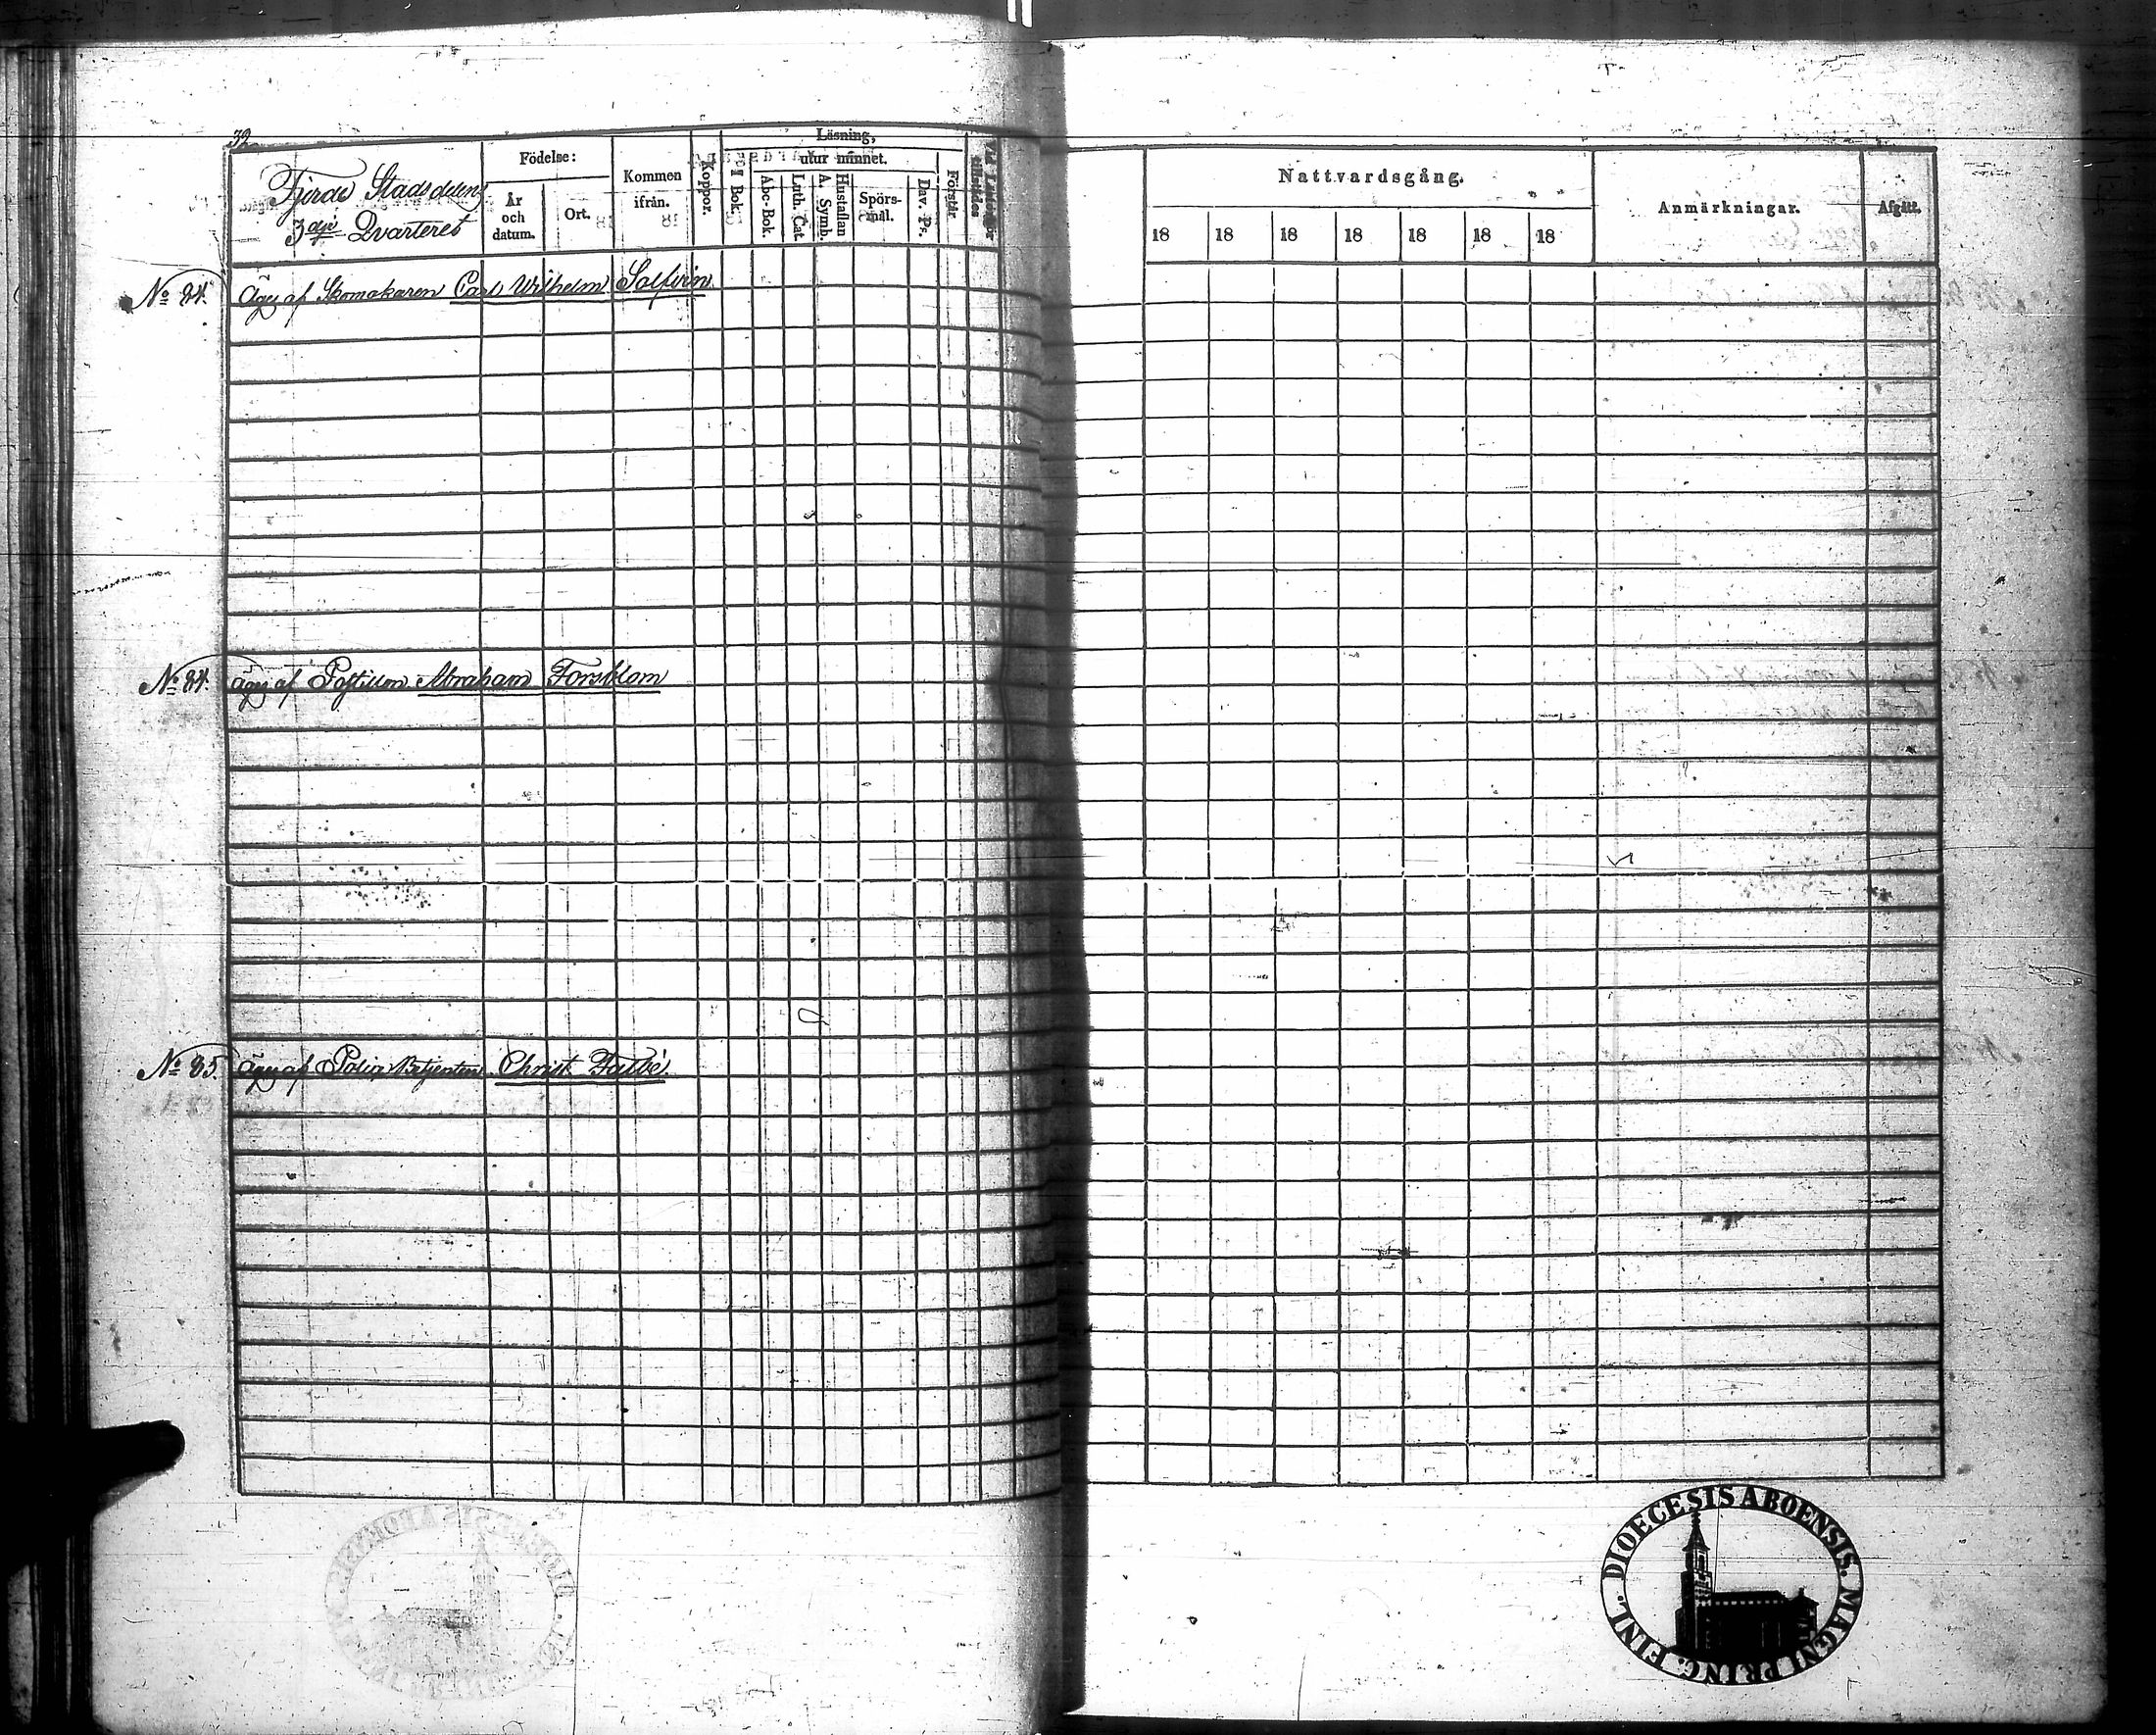 32
Fjerde Stadsdelen
3dje Qvarteret
Födelse:
År
och
datum.
Ort.
Kommen
ifrån.
Koppor.
Läsning,
utur minnet.
I Bok.
Abc-Bok.
Luth. Cat.
A. Symb.
Hustaflan
Spörs-
mål.
Dav. Ps.
Förstår.
Nattvardsgång.
18 18 18 18 18 18 18
Anmärkningar.
Afgått.
No 84. Äges af Skomakaren Carl Wilhelm
No 84. Äges af Postillon Abraham Forsblom
No 85. Äges af Betjenten Christ.
DIOECESIS ABOENSIS. MAGNI PRINC. FINL.